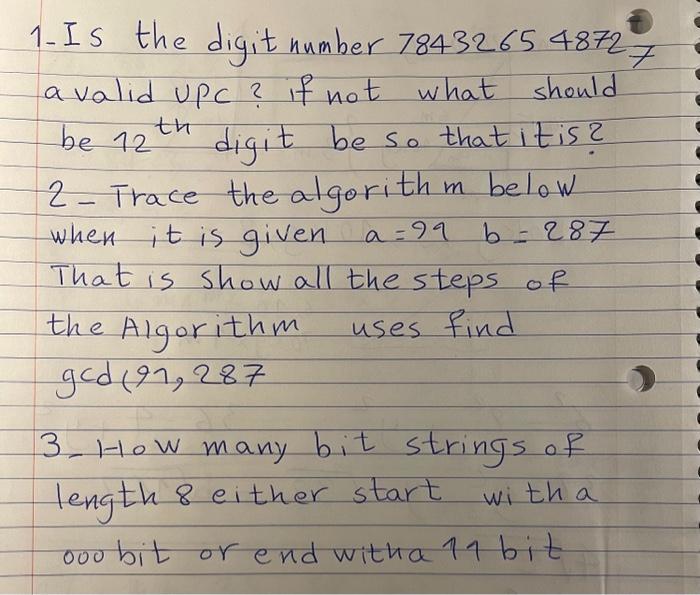 1-Is the digit number 78432654872 7
a valid UPC ? if not what should
be 12th digit be so that it is?
2- Trace the algorithm below
when it is given a=91 b=287
That is show all the steps of
the Algorithm uses find
gcd(91,287
3- How many bit strings of
length 8 either start with a
000 bit or end with a 11 bit